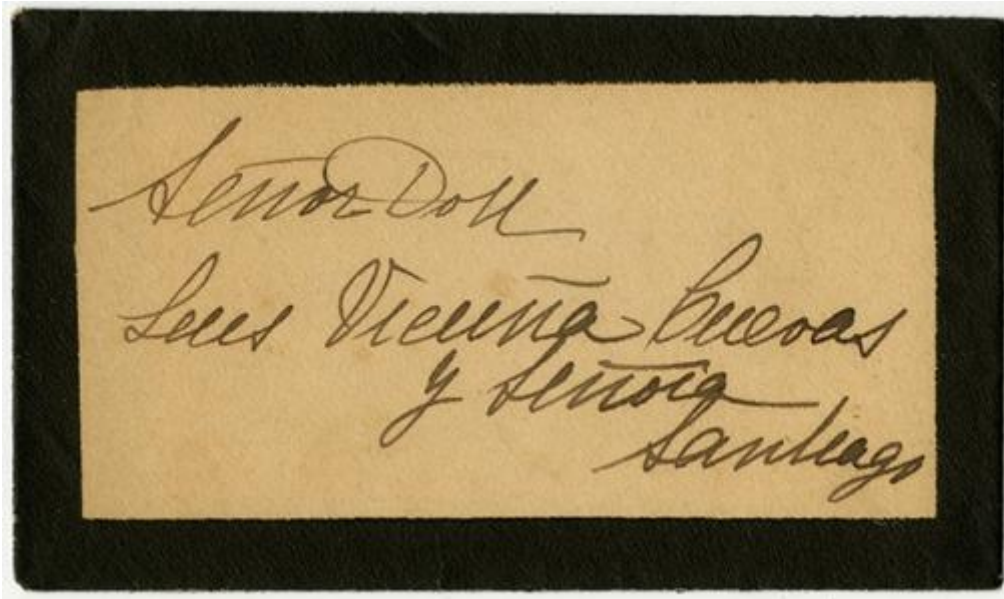 Señor Don
Luis Vicuña Cuevas
y Señora
Santiago